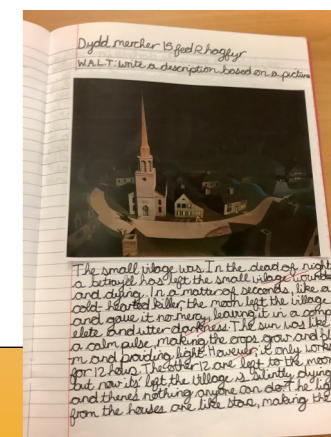 Dydd mercher 15fed Rhagfyr
W.A.L.T: Write a description based on a picture
The small vilage was. In the dead of night
a betrayl has left the small village wounded
and dying. In a matter of seconds, like a
cold hearted killer the moon left the village
and gave it no mercy, leaving it in a comp
elete and utter darkness. The sun was like
a calm pulse, making the crops grow and blo
m and proiding light. However it only works
for 12 hours. The other 12 are left to the moon
but now its left the village is silently dying
and theres nothing anyone can do. The light
from the houses are like stars, making the